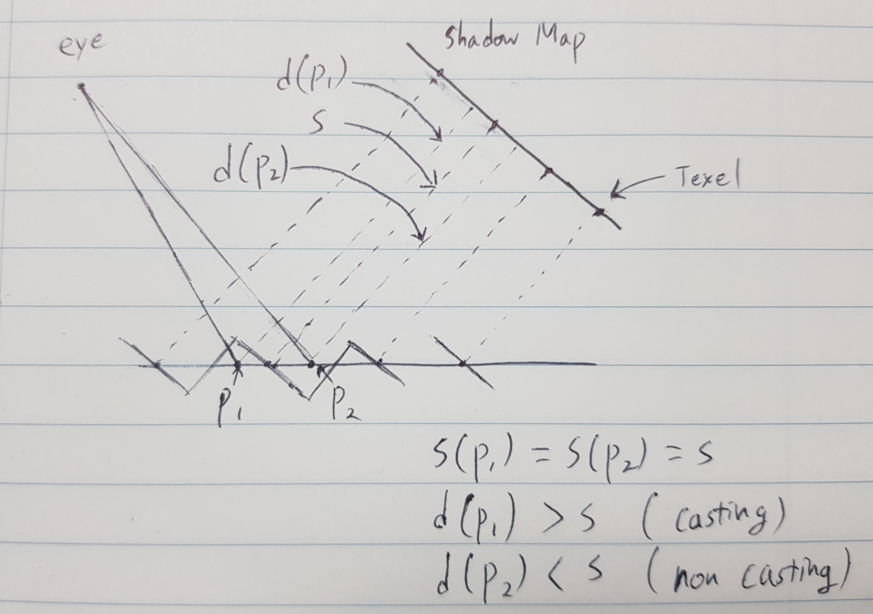 eye
Shadow Map
d(p₁)
s
d(p₂)
Texel
p₁
p₂
s(p₁) = s(p₂) = s
d(p₁) > s (casting)
d(p₂) < s (non casting)